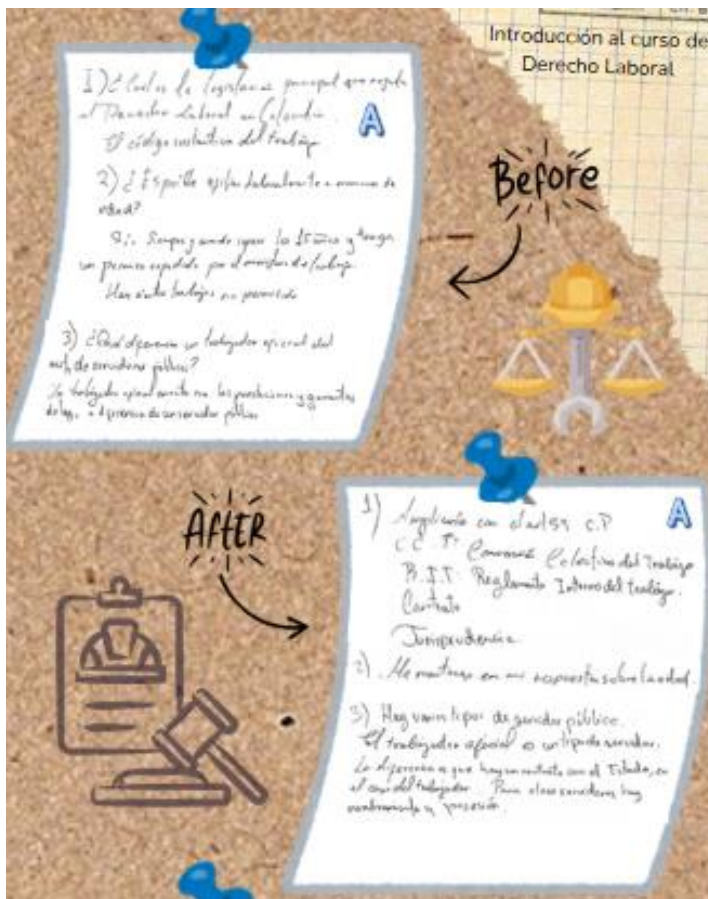 Introducción al curso de
Derecho Laboral
Before
A
1) ¿Cuál es la legislación principal que regula
el Derecho Laboral en Colombia
El código sustantivo del trabajo
2) ¿Es posible laboralmente a menores de
edad?
Si. Siempre y cuando los 15 años y tenga
un permiso expedido por el de trabajo
Hay trabajos no permitido
3) ¿Qué diferencia un trabajador oficial del
de servidores públicos?
Un trabajador oficial las prestaciones y garantías
de ley, a diferencia de un servidor público
AFTER
A
1) Ampliaría con el art 53 C.P
C.C.T: Convención Colectiva del Trabajo
R.I.T: Reglamento Interno del trabajo.
Contrato
Jurisprudencia
2). Me mantengo en mi respuesta sobre la edad.
3) Hay varios tipos de servidor público.
El trabajador oficial es un tipo de servidor.
La diferencia es que hay un contrato con el Estado, en
el caso del trabajador. Para otros servidores hay
nombramiento y posesión.